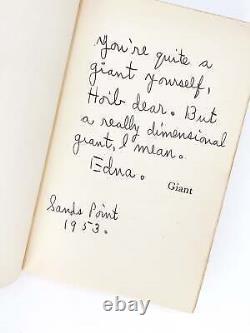 You're quite a
giant yourself,
Hoib dear. But
a really dimensional
giant, I mean.
Edna.
Giant
Sands Point
1953.
© thumbimg.com